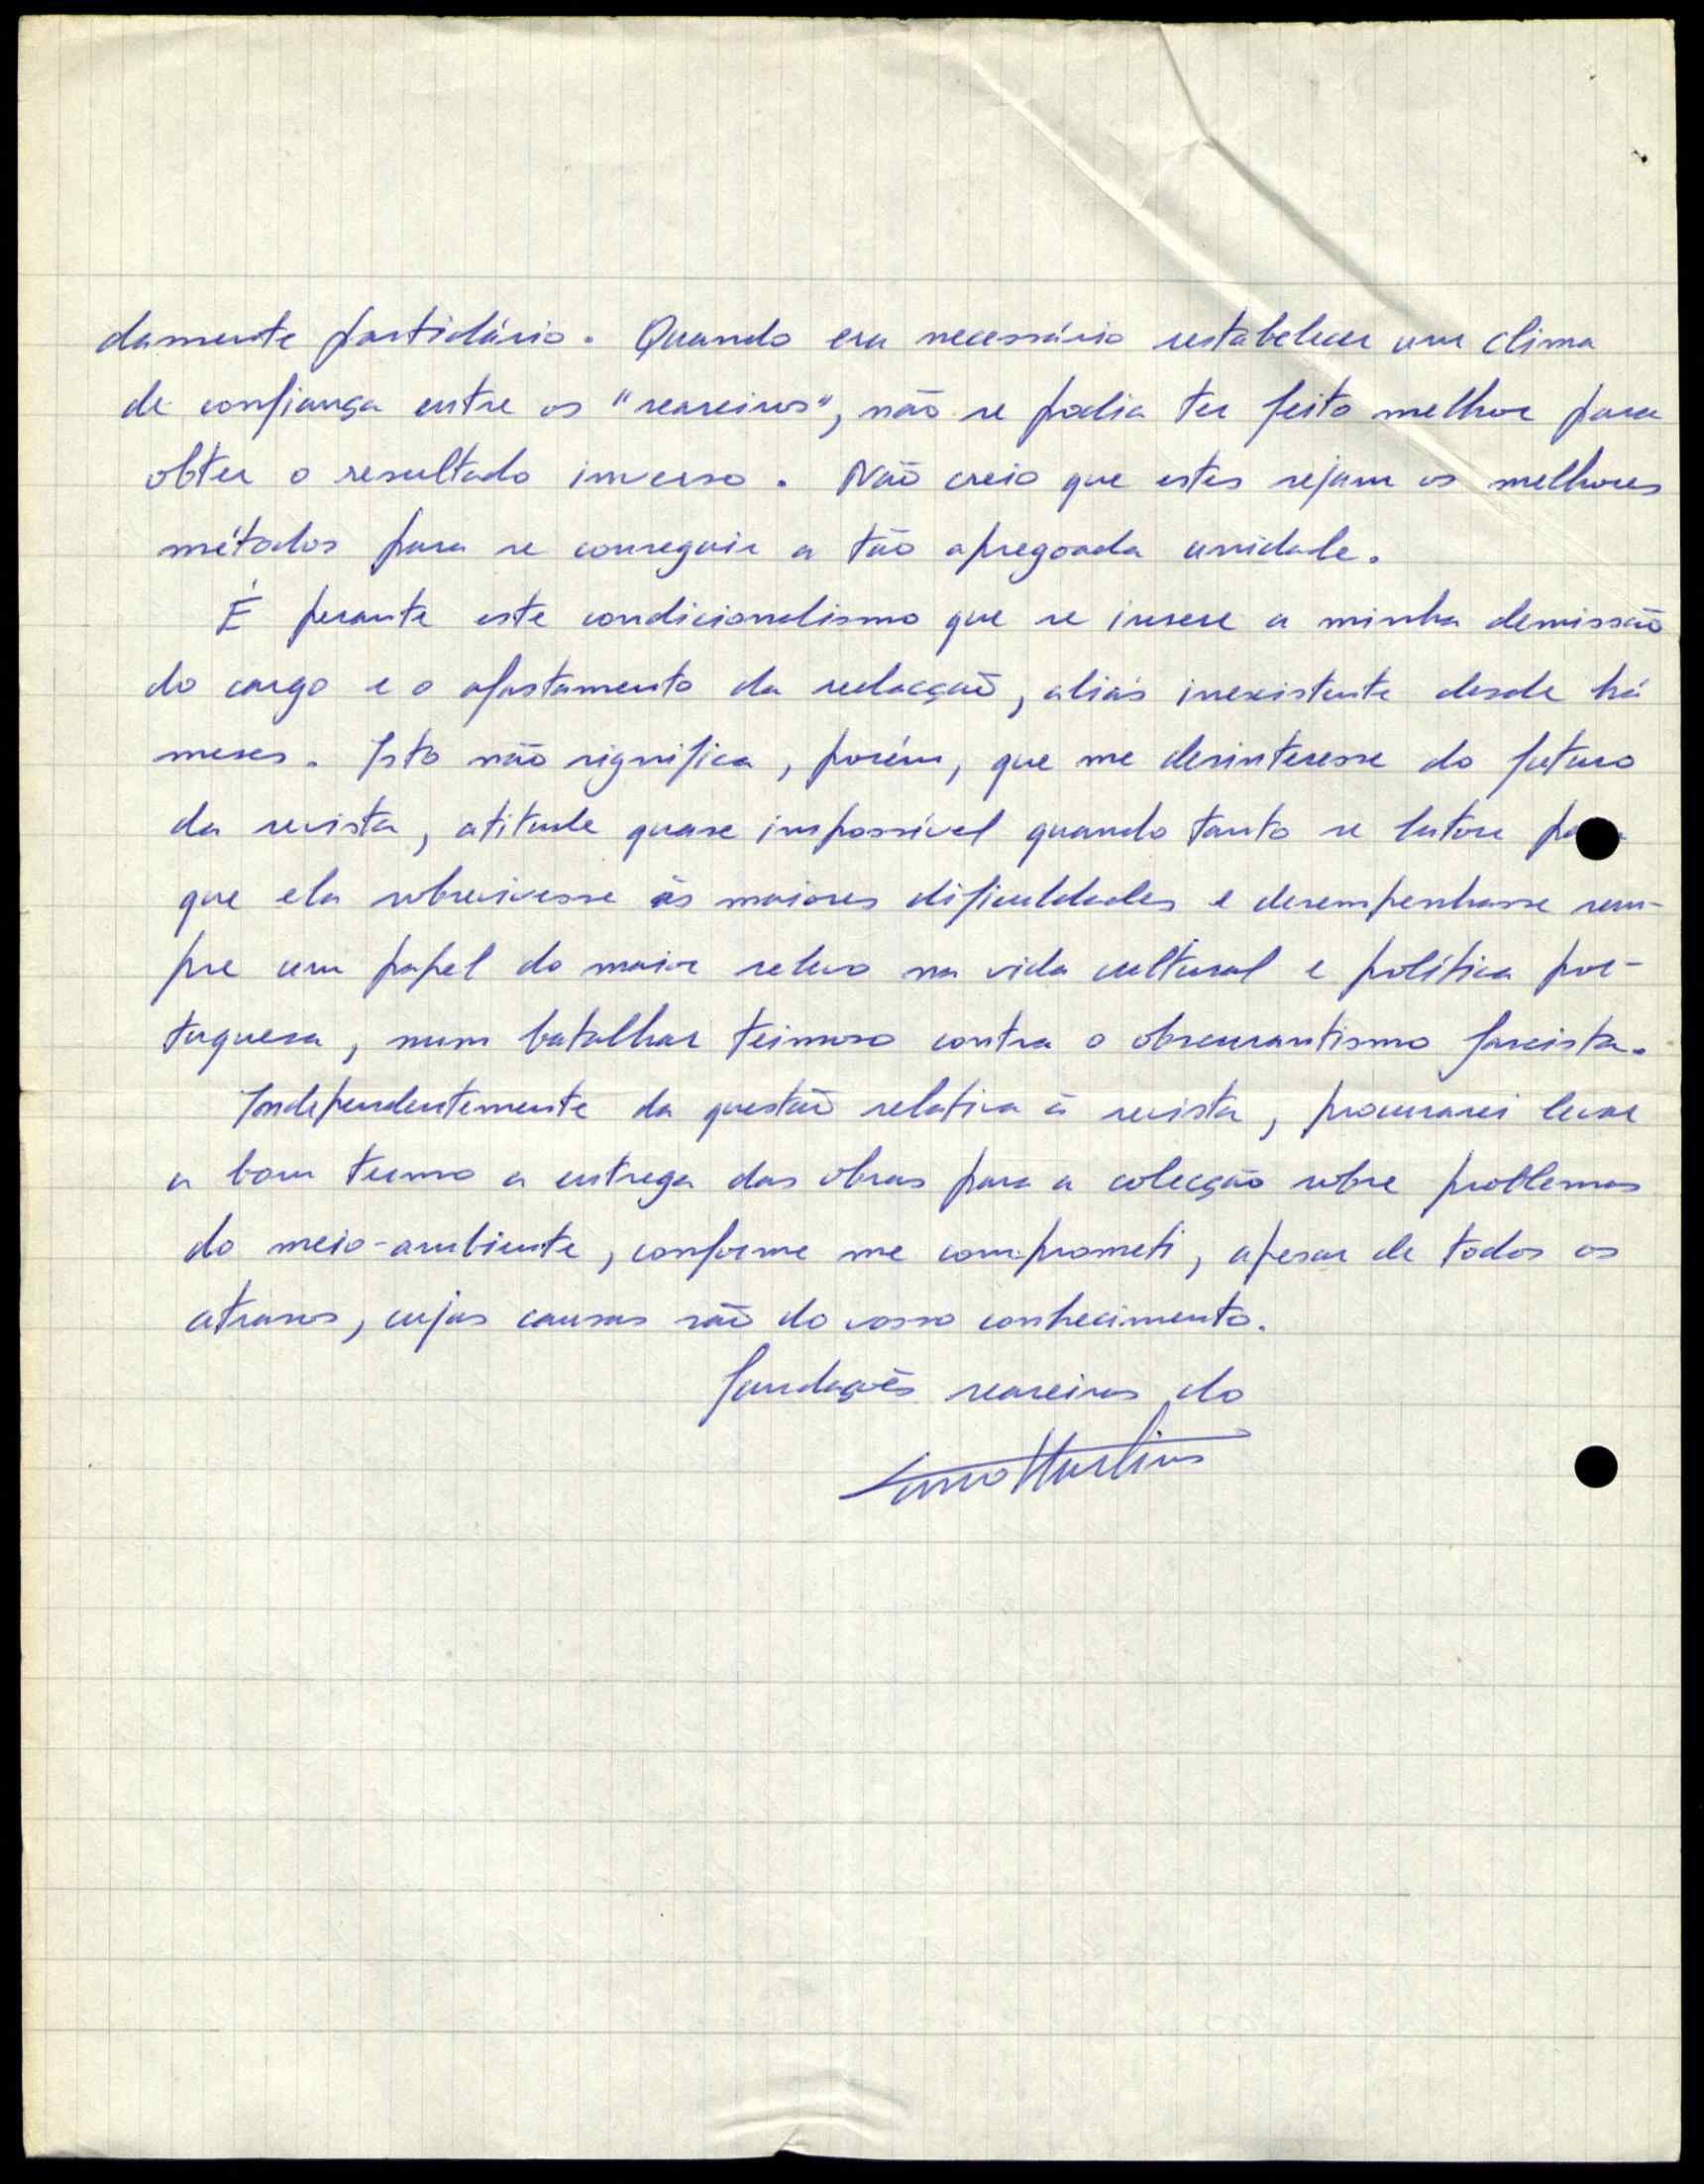 damente partidário. Quando era necessário restabelecer um clima
de confiança entre os "seareiros", não se podia ter feito melhor para
obter o resultado inverso. Não creio que estes sejam os melhores
métodos para se conseguir a tão apregoada unidade.
É perante este condicionalismo que se insere a minha demissão
do cargo e o afastamento da redacção, aliás inexistente desde há
meses. Isto não significa, porém, que me desinteresse do futuro
da revista, atitude quase impossível quando tanto se lutou
que ela sobrevivesse às maiores dificuldades e desempenhasse sem-
pre um papel do maior relevo na vida cultural e política por-
tuguesa, num batalhar teimoso contra o obscurantismo fascista.
Independentemente da questão relativa à revista, procurarei levar
a bom termo a entrega das obras para a colecção sobre problemas
do meio-ambiente, conforme me comprometi, apesar de todos os
atrasos, cujas causas são do vosso conhecimento.
Saudações seareiras do
Martins